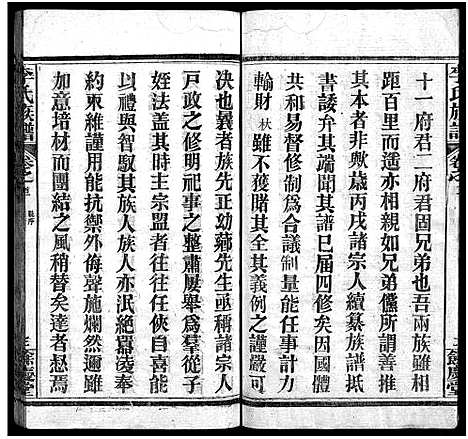 十一府君二府君固兄弟也吾兩族雖相
距百里而遙亦相親如兄弟儻所謂善推
其本者非歟歲丙戌諸宗人續纂族譜抵
書諉弁其端聞其譜已屆四修矣因國體
共和易祠制爲合議制量能任事計力
輸財 枤 雖不獲與其義例之謹嚴可
決也義者族先正幼薌先生亟稱諸宗人
戸政之修明祀事之整肅屢舉爲羣從子
姪法蓋其時主宗盟者
以禮與智馭其族人族人亦泯絕囂淩奉
約束維謹用能抗禦外侮聲施爛然邇雖
加意培材而團結之風稍替矣達者惄焉
李氏族譜
卷之首
三餘慶堂